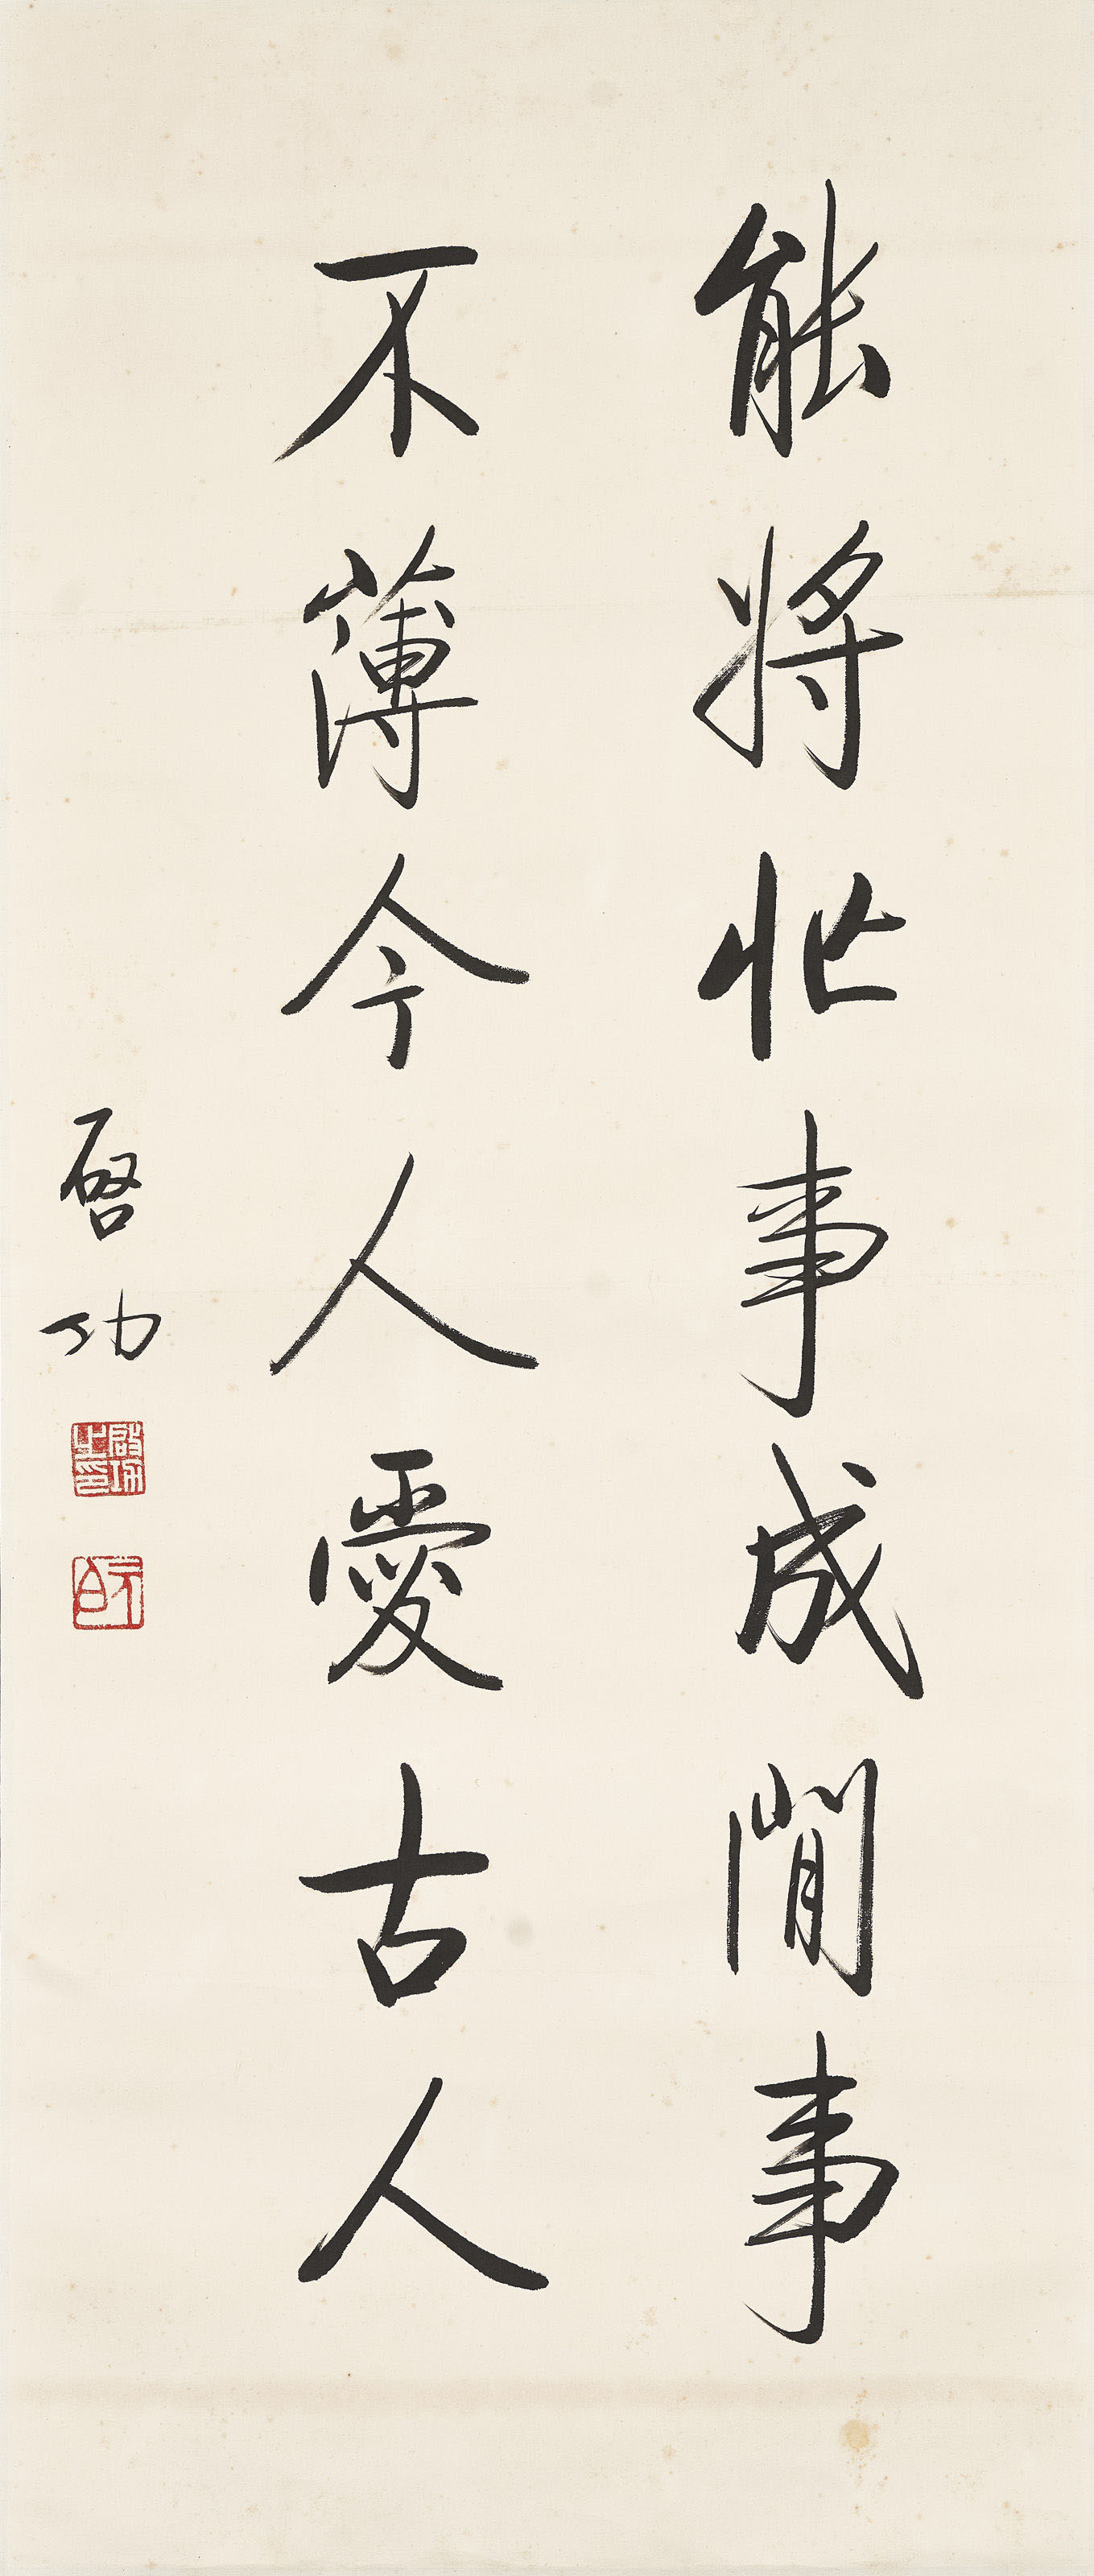 能將忙事成閒事
不薄今人愛古人
啓功
啟功之印
元白